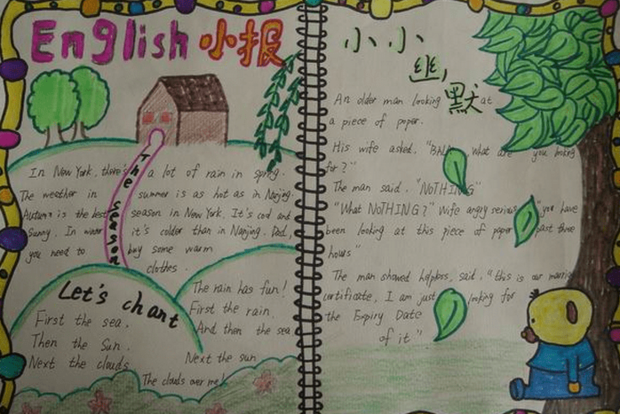 English 小报
In New York, there's a lot of rain in spring.
The weather in summer is as hot as in Nanjing.
Autumn is the best season in New York. It's cool and
Sunny. In winter it's colder than in Nanjing. Dad,
you need to buy some warm
clothes.
The season
Let's chant
First the sea,
Then the Sun.
Next the clouds
The rain has fun!
First the rain.
And then the sea
Next the sun
The clouds over me!
小小
幽默
An older man looking at
a piece of paper.
His wife asked. " what are you looking
for?"
The man said. "NoTHING"
"What NoTHING?" Wife angry "you have
been looking at this piece of paper past three
hours"
The man showed helpless, said. "this is our
certificate, I am just looking for
the Expiry Date
of it"